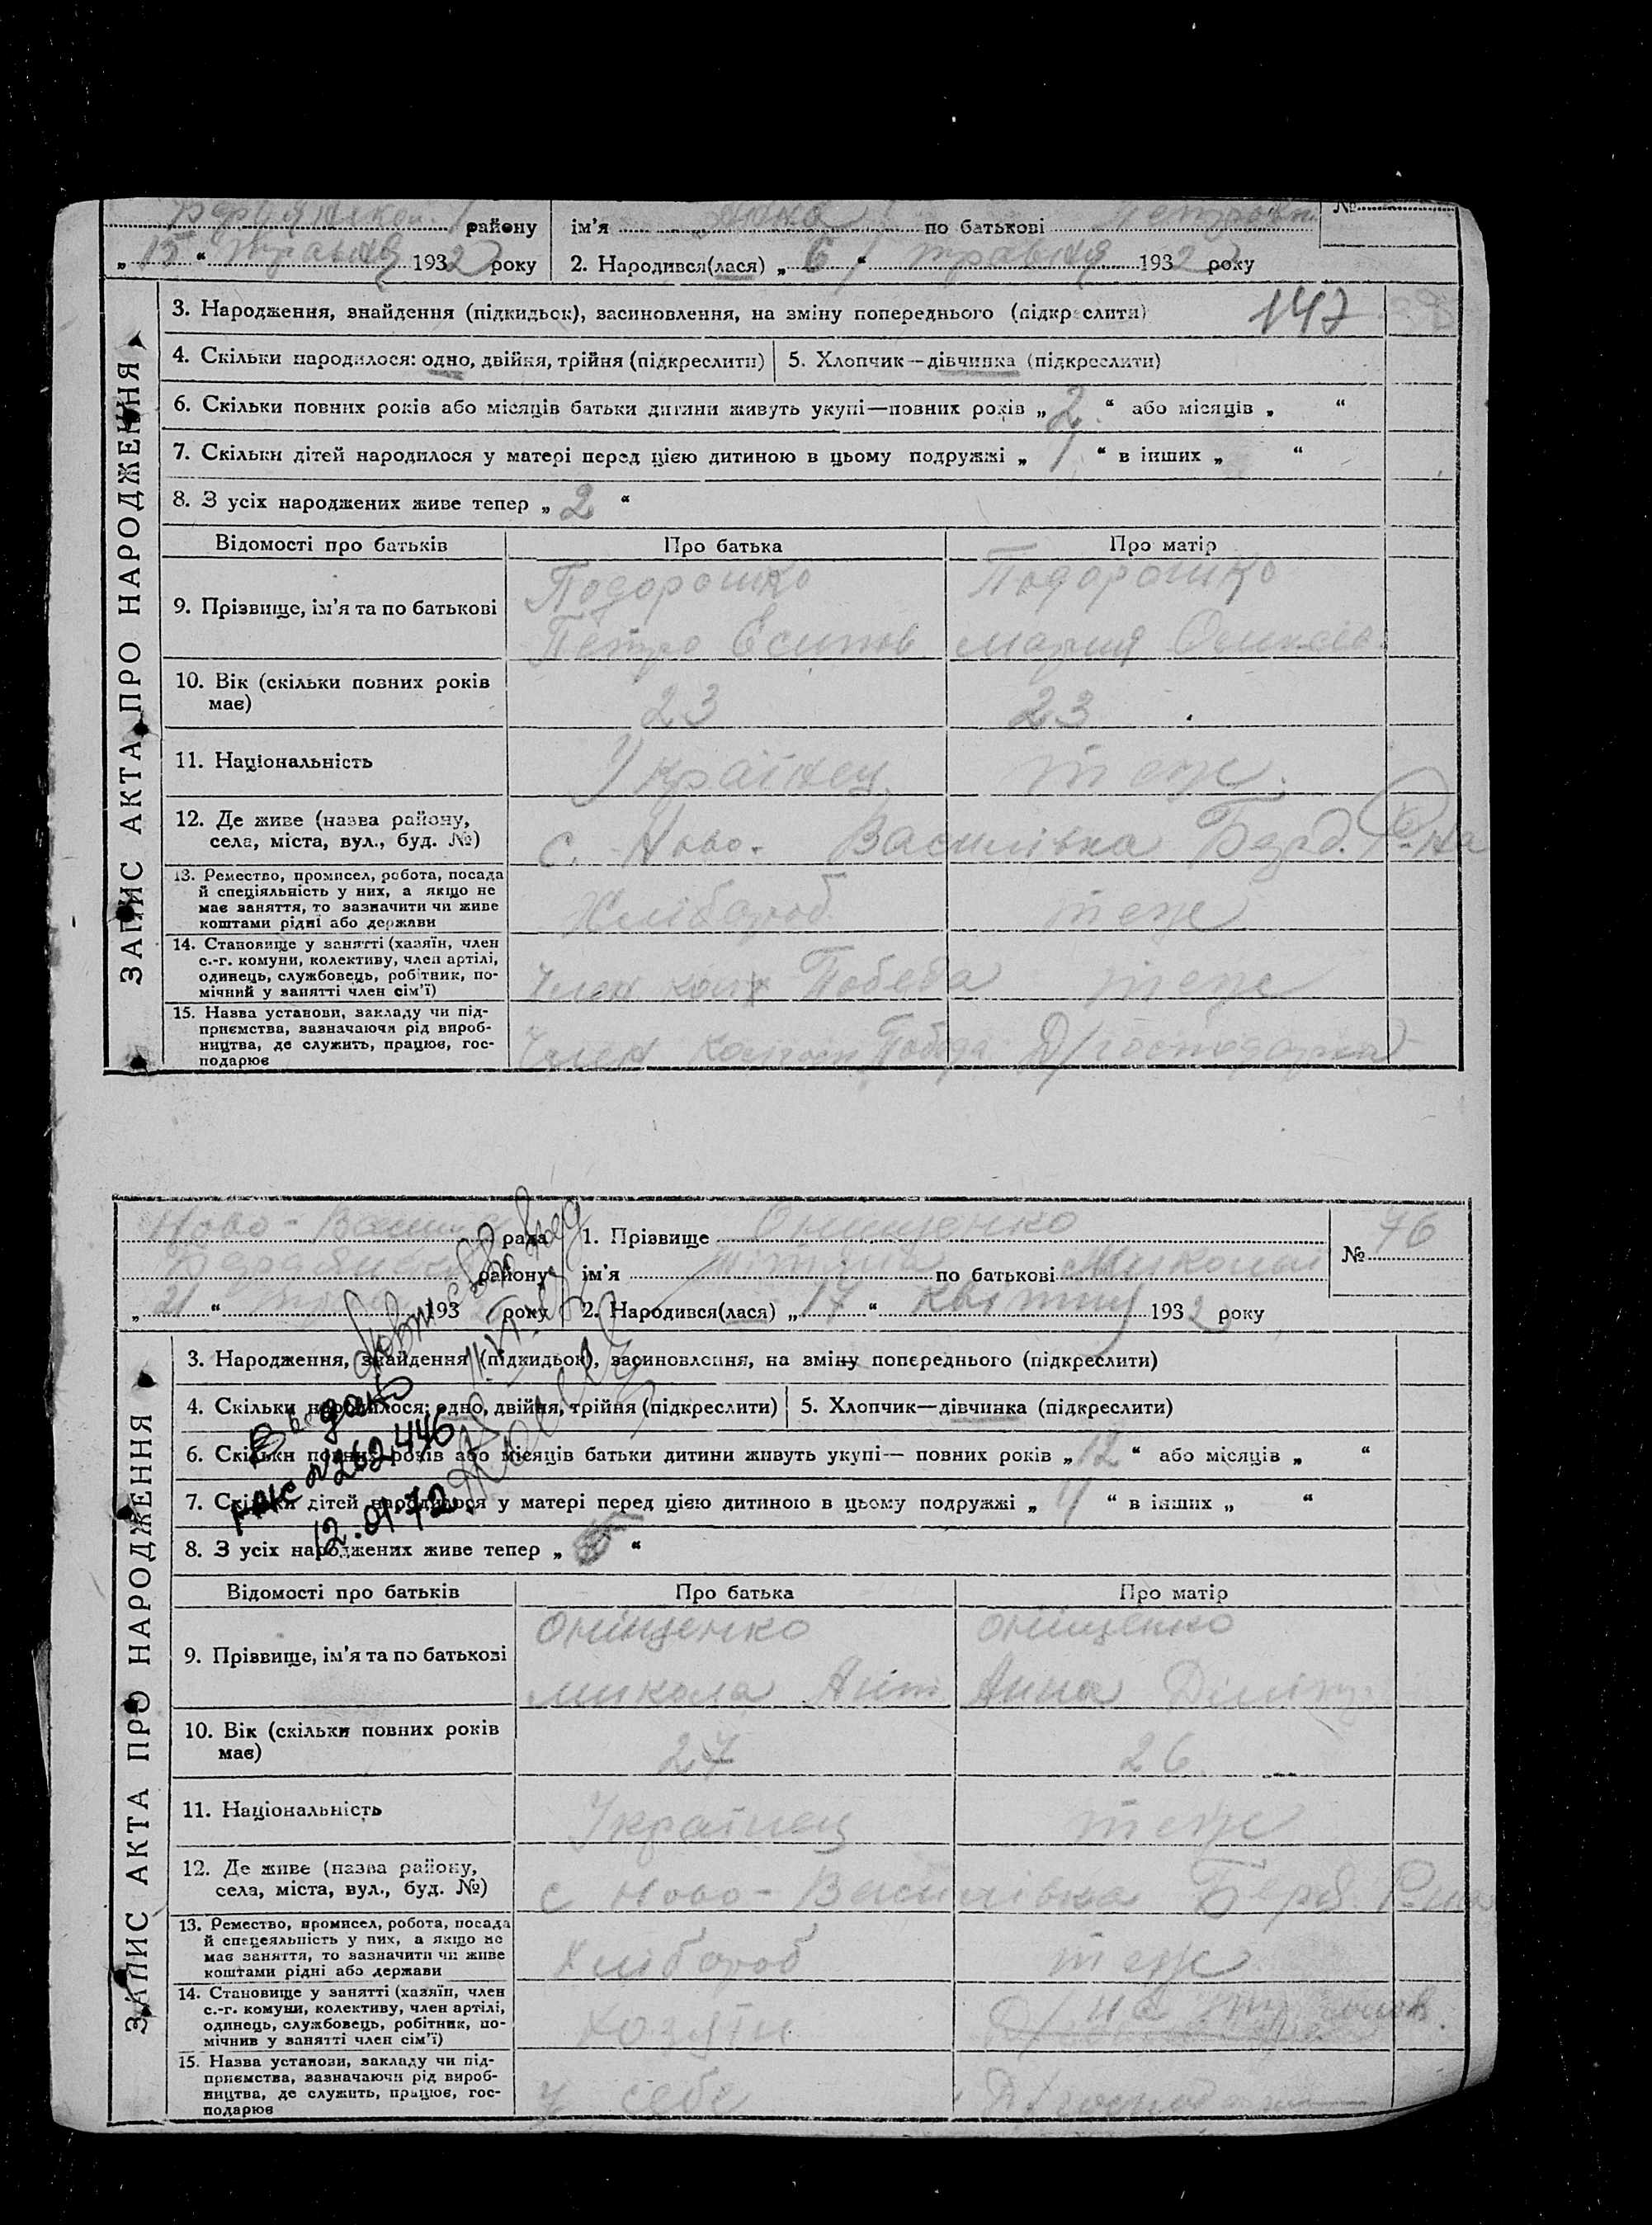 Бердянськ. району ім'я Анна по батькові Петровн
„ 15 “ травня 1932 року 2. Народився(лася) „ 6 “ травня 1932 року
№
3. Народження, знайдення (підкидьок), засиновлення, на зміну попереднього (підкреслити) 147
4. Скільки народилося: одно, двійня, трійня (підкреслити) 5. Хлопчик—дівчинка (підкреслити)
6. Скільки повних років або місяців батьки дитини живуть укупі—повних років „ 2 “ або місяців „ “
7. Скільки дітей народилося у матері перед цією дитиною в цьому подружжі „ 1 “ в інших „ “
8. З усіх народжених живе тепер „ 2 “
Відомості про батьків Про батька Про матір
9. Прізвище, ім'я та по батькові Подорошко Подорошко
Петро Єсипов Мария Олексів
10. Вік (скільки повних років
має) 23 23
11. Національність Українец теже
12. Де живе (назва району,
села, міста, вул., буд. №) с. Ново-Василівка Берд. Р-на
13. Ремество, промисел, робота, посада
й спеціяльність у них, а якщо не
має заняття, то зазначити чи живе
коштами рідні або держави
Хлібороб теже
14. Становище у занятті (хазяїн, член
с.-г. комуни, колективу, член артілі,
одинець, службовець, робітник, по-
мічний у занятті член сім'ї)
Член колх Победа теже
15. Назва установи, закладу чи під-
приємства, зазначаючи рід вироб-
ництва, де служить, працює, гос-
подарює
Член колгосп Победа Д/господарка
ЗАПИС АКТА ПРО НАРОДЖЕННЯ
Ново-Васил рада 1. Прізвище Онищенко № 76
Бердянськ району ім'я по батькові Миколаї
„ 21 “ трав 193 року 2. Народився(лася) „ 17 “ квітня 1932 року
3. Народження, знайдення (підкидьок), засиновлення, на зміну попереднього (підкреслити)
4. Скільки народилося: одно, двійня, трійня (підкреслити) 5. Хлопчик—дівчинка (підкреслити)
6. Скільки повних років або місяців батьки дитини живуть укупі— повних років „ 12 “ або місяців „ “
7. Скільки дітей народилося у матері перед цією дитиною в цьому подружжі „ 4 “ в інших „ “
8. З усіх народжених живе тепер „ 5 “
Выдано
№ 262446
12.01.72
Відомості про батьків Про батька Про матір
9. Прізвище, ім'я та по батькові Оніщенко Оніщенко
Микола Ант Анна Дмітр
10. Вік (скільки повних років
має) 27 26
11. Національність Українец теже
12. Де живе (назва району,
села, міста, вул., буд. №) с Ново-Василівка Берд. Р-на
13. Ремество, промисел, робота, посада
й спецеяльність у них, а якщо не
має заняття, то зазначити чи живе
коштами рідні або держави
Хлібороб теже
14. Становище у занятті (хазяїн, член
с.-г. комуни, колективу, член артілі,
одинець, службовець, робітник, по-
мічнив у занятті член сім'ї)
Хозяїн
15. Назва установи, закладу чи під-
приємства, зазначаючи рід вироб-
ництва, де служить, працює, гос-
подарює
У себе Д/господарка
ЗАПИС АКТА ПРО НАРОДЖЕННЯ